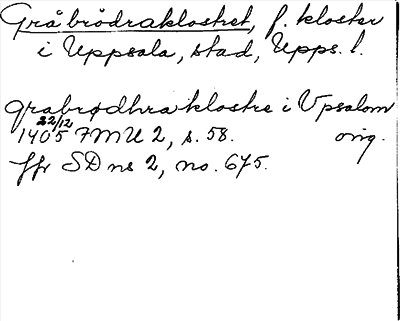 Gråbrödraklostret, f. kloster
i Uppsala, stad, Upps. l.
grabrødhraklostre i Vpsalom
1405 22/12 FMU 2, s. 58. orig.
Jfr SD ns 2, no. 675.